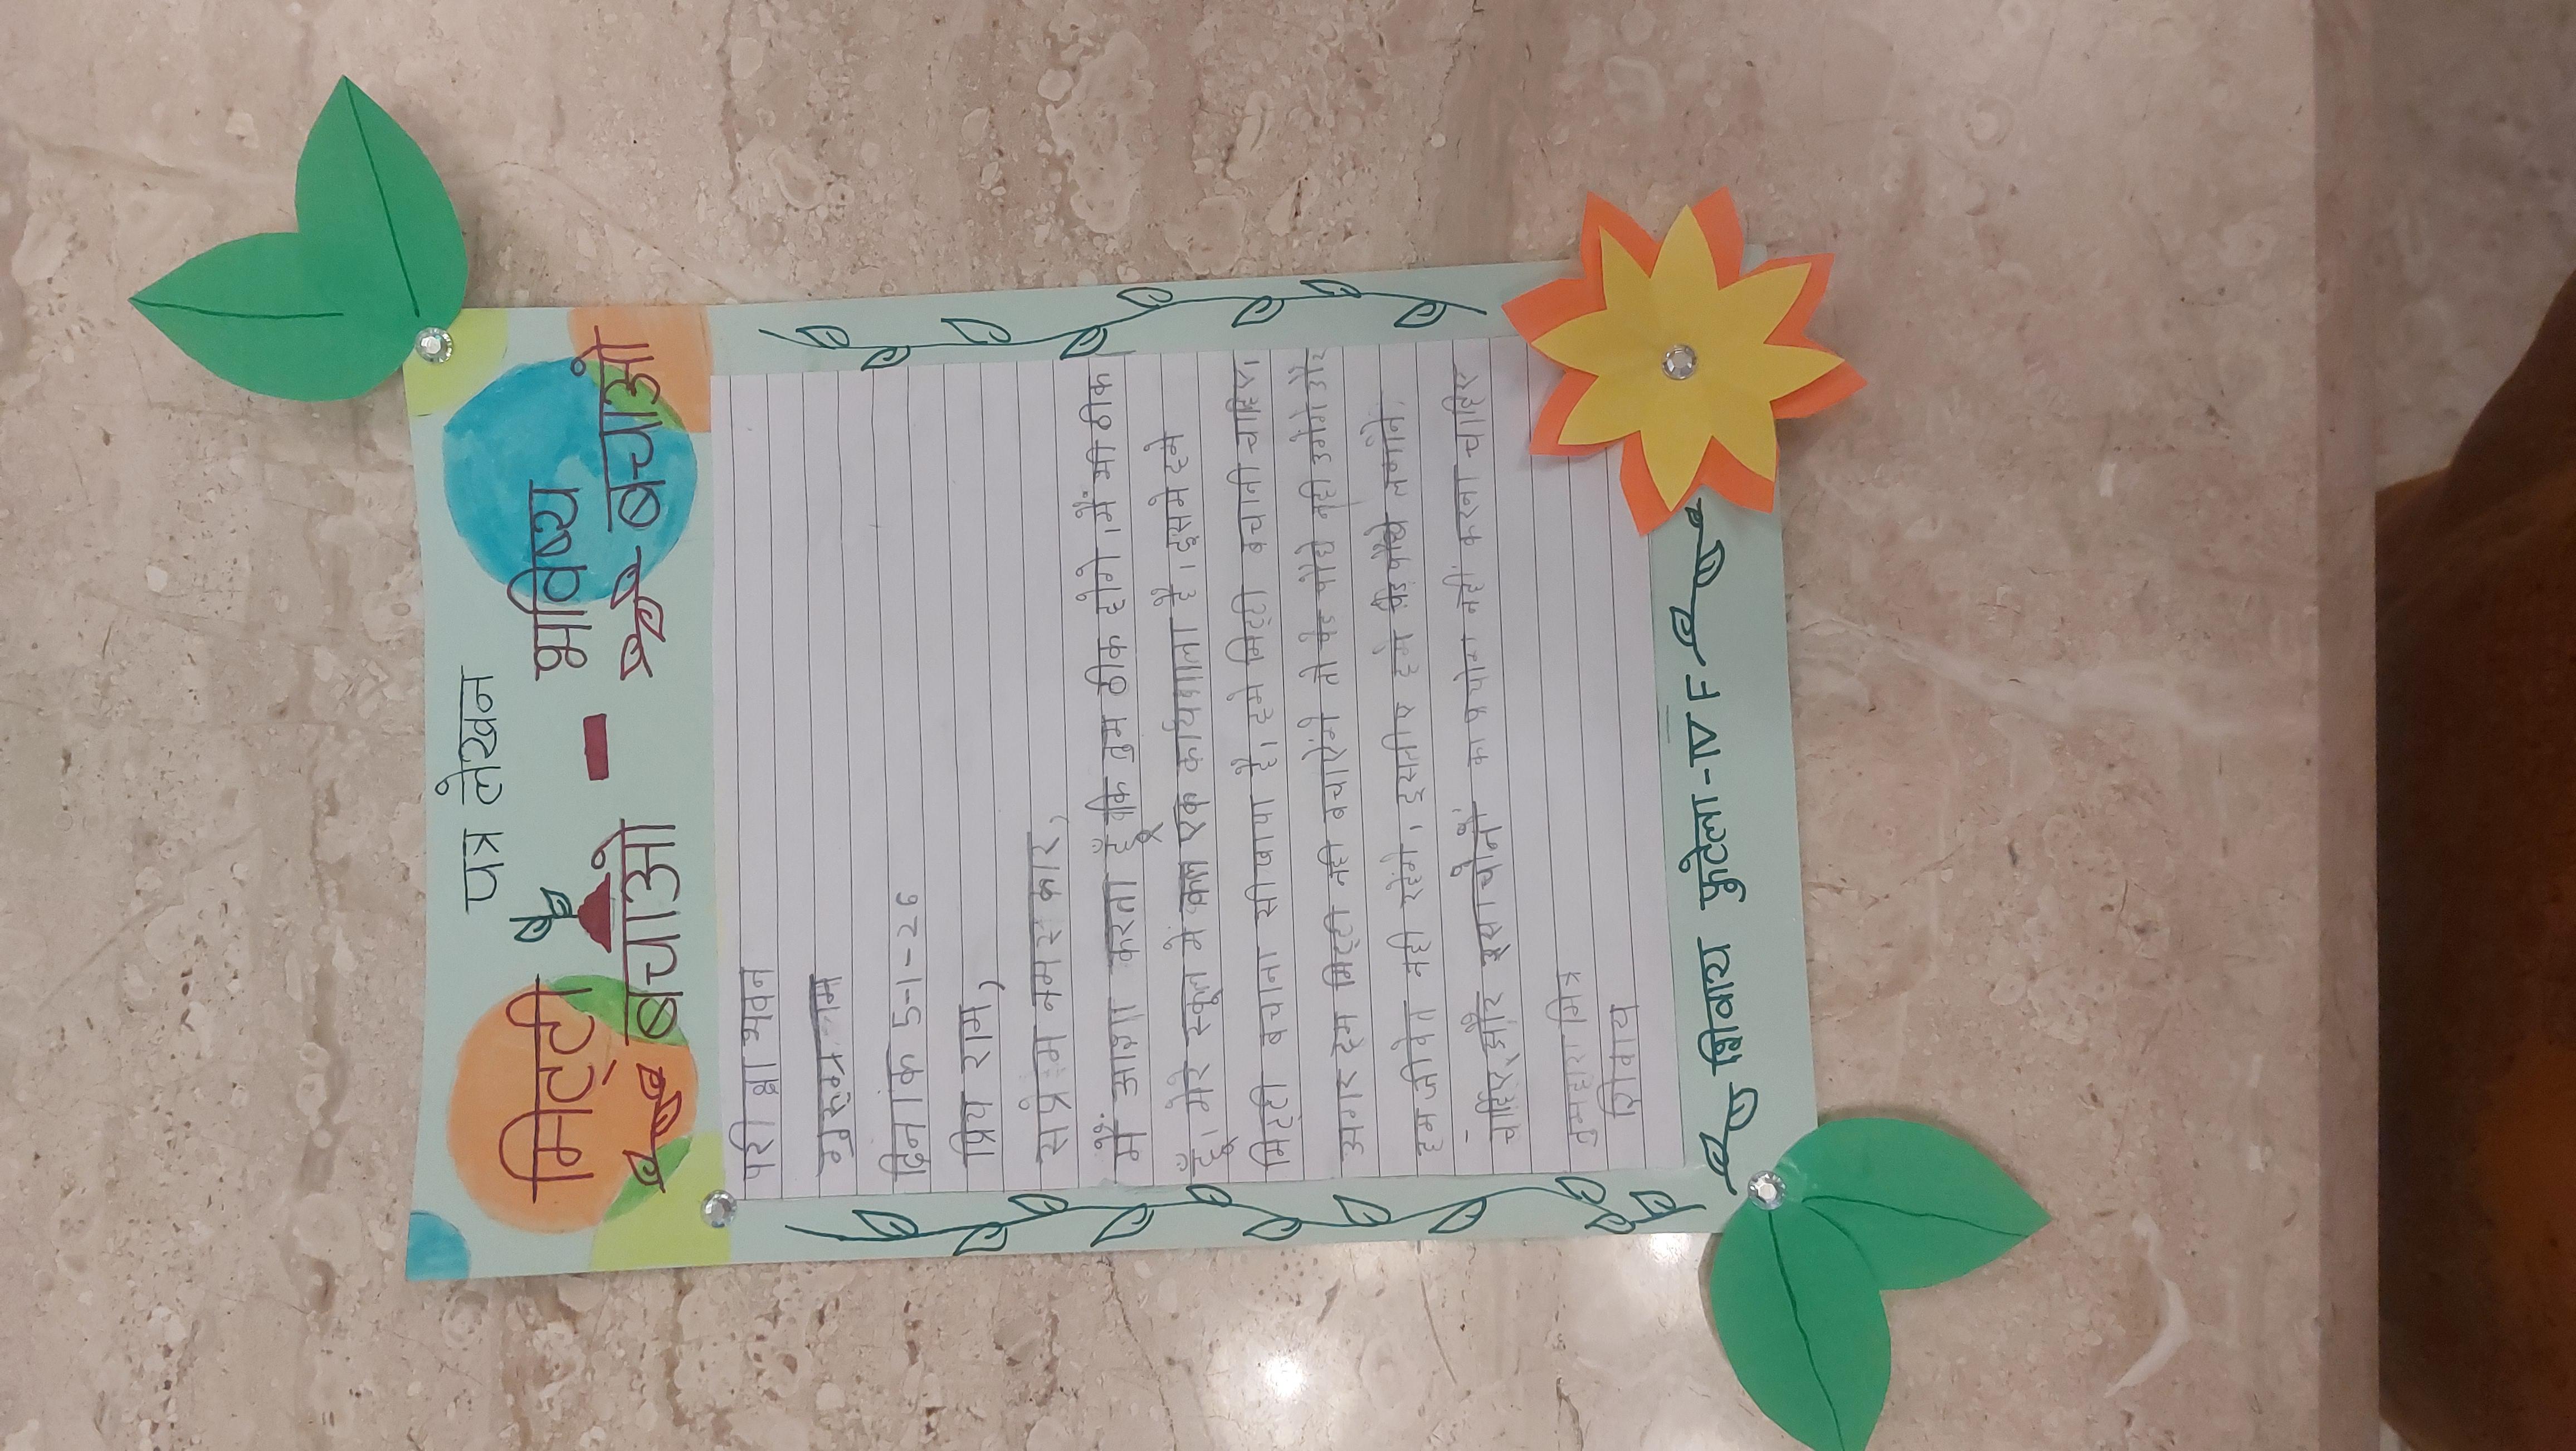 पत्र लेखन
मिट्टी बचाओ - भविष्य बचाओ
परी क्षा भवन
गुरुग्राम
दिनांक 5-1-26
प्रिय राम,
सप्रेम नमस्कार,
मैं आशा करता हूँ कि तुम ठीक होंगे। मैं भी ठीक
हूँ। मेरे स्कूल मे कल एक कार्यशाला है। इसमे हमे
मिट्टी बचाना सीखाया है। हमे मिट्टी बचानी चाहिए।
अगर हम मिट्टी नही बचाऐंगे तो पेड़ पौधे नही उगेंगे और
हम जीवित नही रहेंगे। इसलीए हमे पेड़ पौधे लगाने
चाहिए और का प्रयोग नहीं करना चाहिए
तुमहारा मित्र
शिवाय
शिवाय फुटेला - IV F